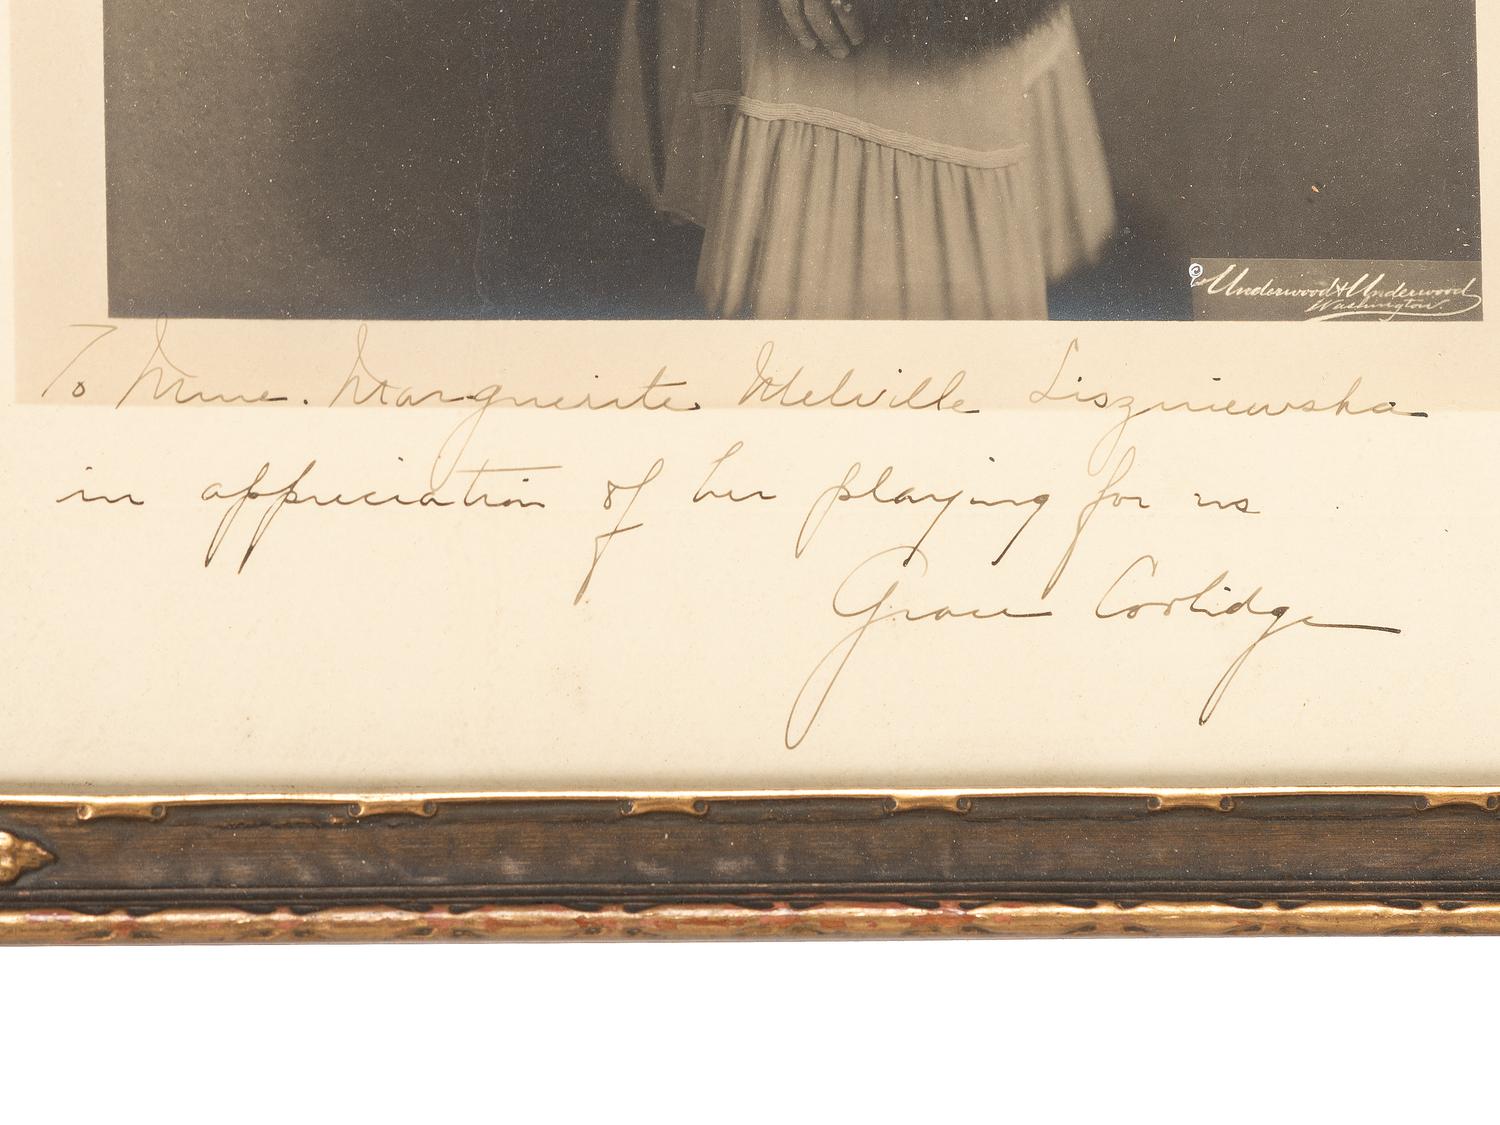 © Underwood & Underwood
Washington.
To Mme. Marguerite Melville Liszniewska
in appreciation of her playing for us
Grace Coolidge